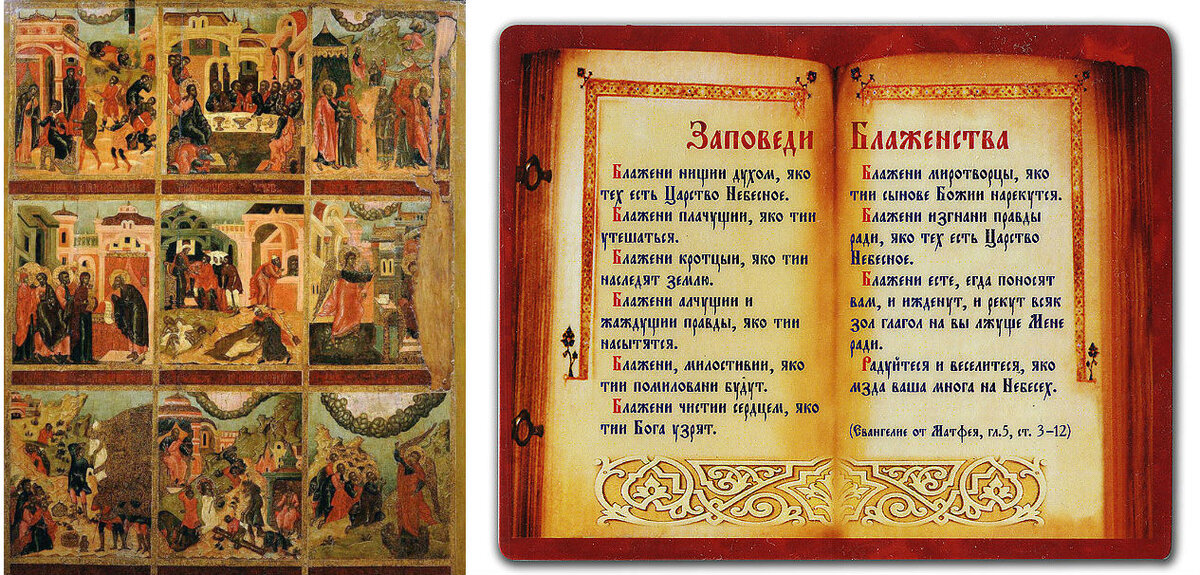 Заповеди
Блажени нищии духом, яко
тех есть Царство Небесное.
Блажени плачущии, яко тии
утешаться.
Блажени кротцыи, яко тии
наследят землю.
Блажени алчущии и
жаждущии правды, яко тии
насытятся.
Блажени, милостивии, яко
тии помиловани будут.
Блажени чистии сердцем, яко
тии Бога узрят.
Блаженства
Блажени миротворцы, яко
тии сынове Божии нарекутся.
Блажени изгнани правды
ради, яко тех есть Царство
Небесное.
Блажени есте, егда поносят
вам, и ижденут, и рекут всяк
зол глагол на вы лжуще Мене
ради.
Радуйтеся и веселитеся, яко
мзда ваша многа на Небесех.
(Евангелие от Матфея, гл.5, ст. 3-12)